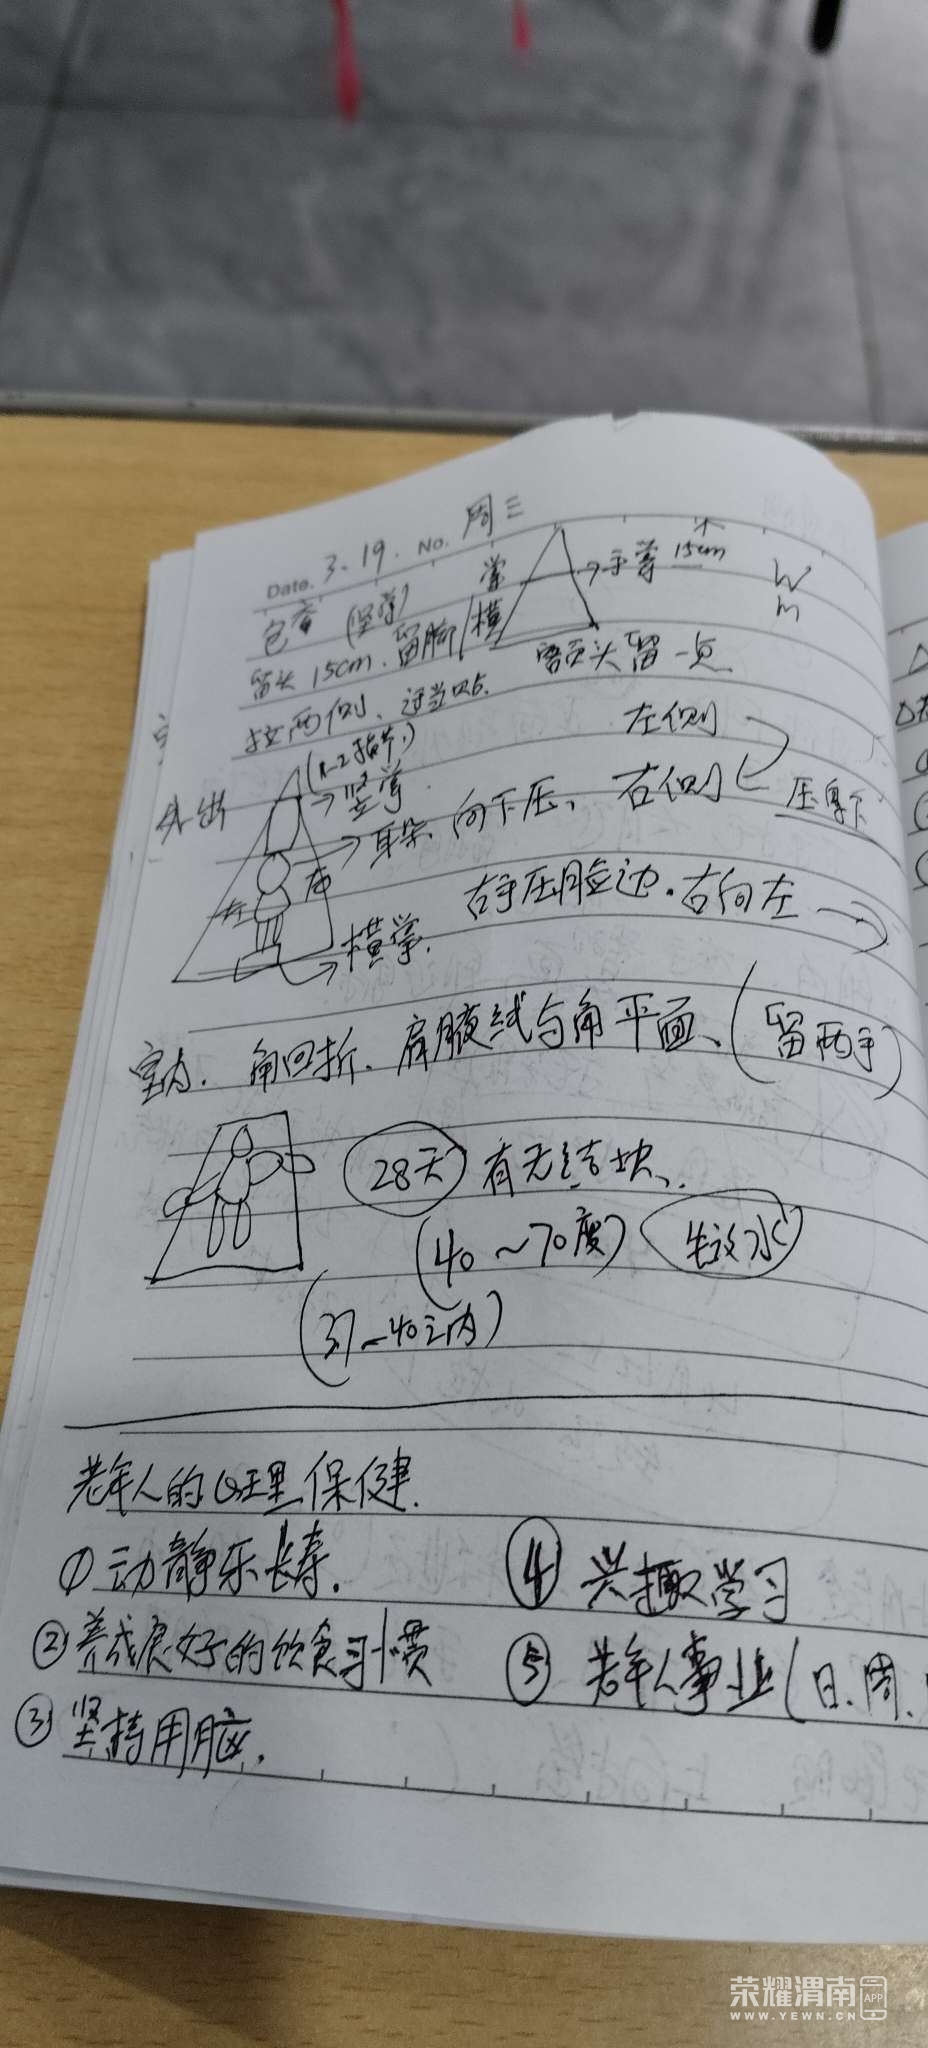 Date. 3.19. No. 周三
15cm
W
m
留头 15cm. 留脚 横
头留一点
拉两侧、
左侧
(1-2指节)
外出
竖掌
耳朵 向下压、右侧
压身下
左
右
右手压脸边.右向左
横掌.
室内. 角回折. 肩腋线与角平面、(留两手)
28天 有无结块.
(40~70度) 放水
(37-40之内)
老年人的心理保健.
① 动静乐长寿.
④ 兴趣学习
② 养成良好的饮食习惯
⑤ 老年人事业(日、周、
③ 坚持用脑.
荣耀渭南 APP
WWW.YEWN.CN